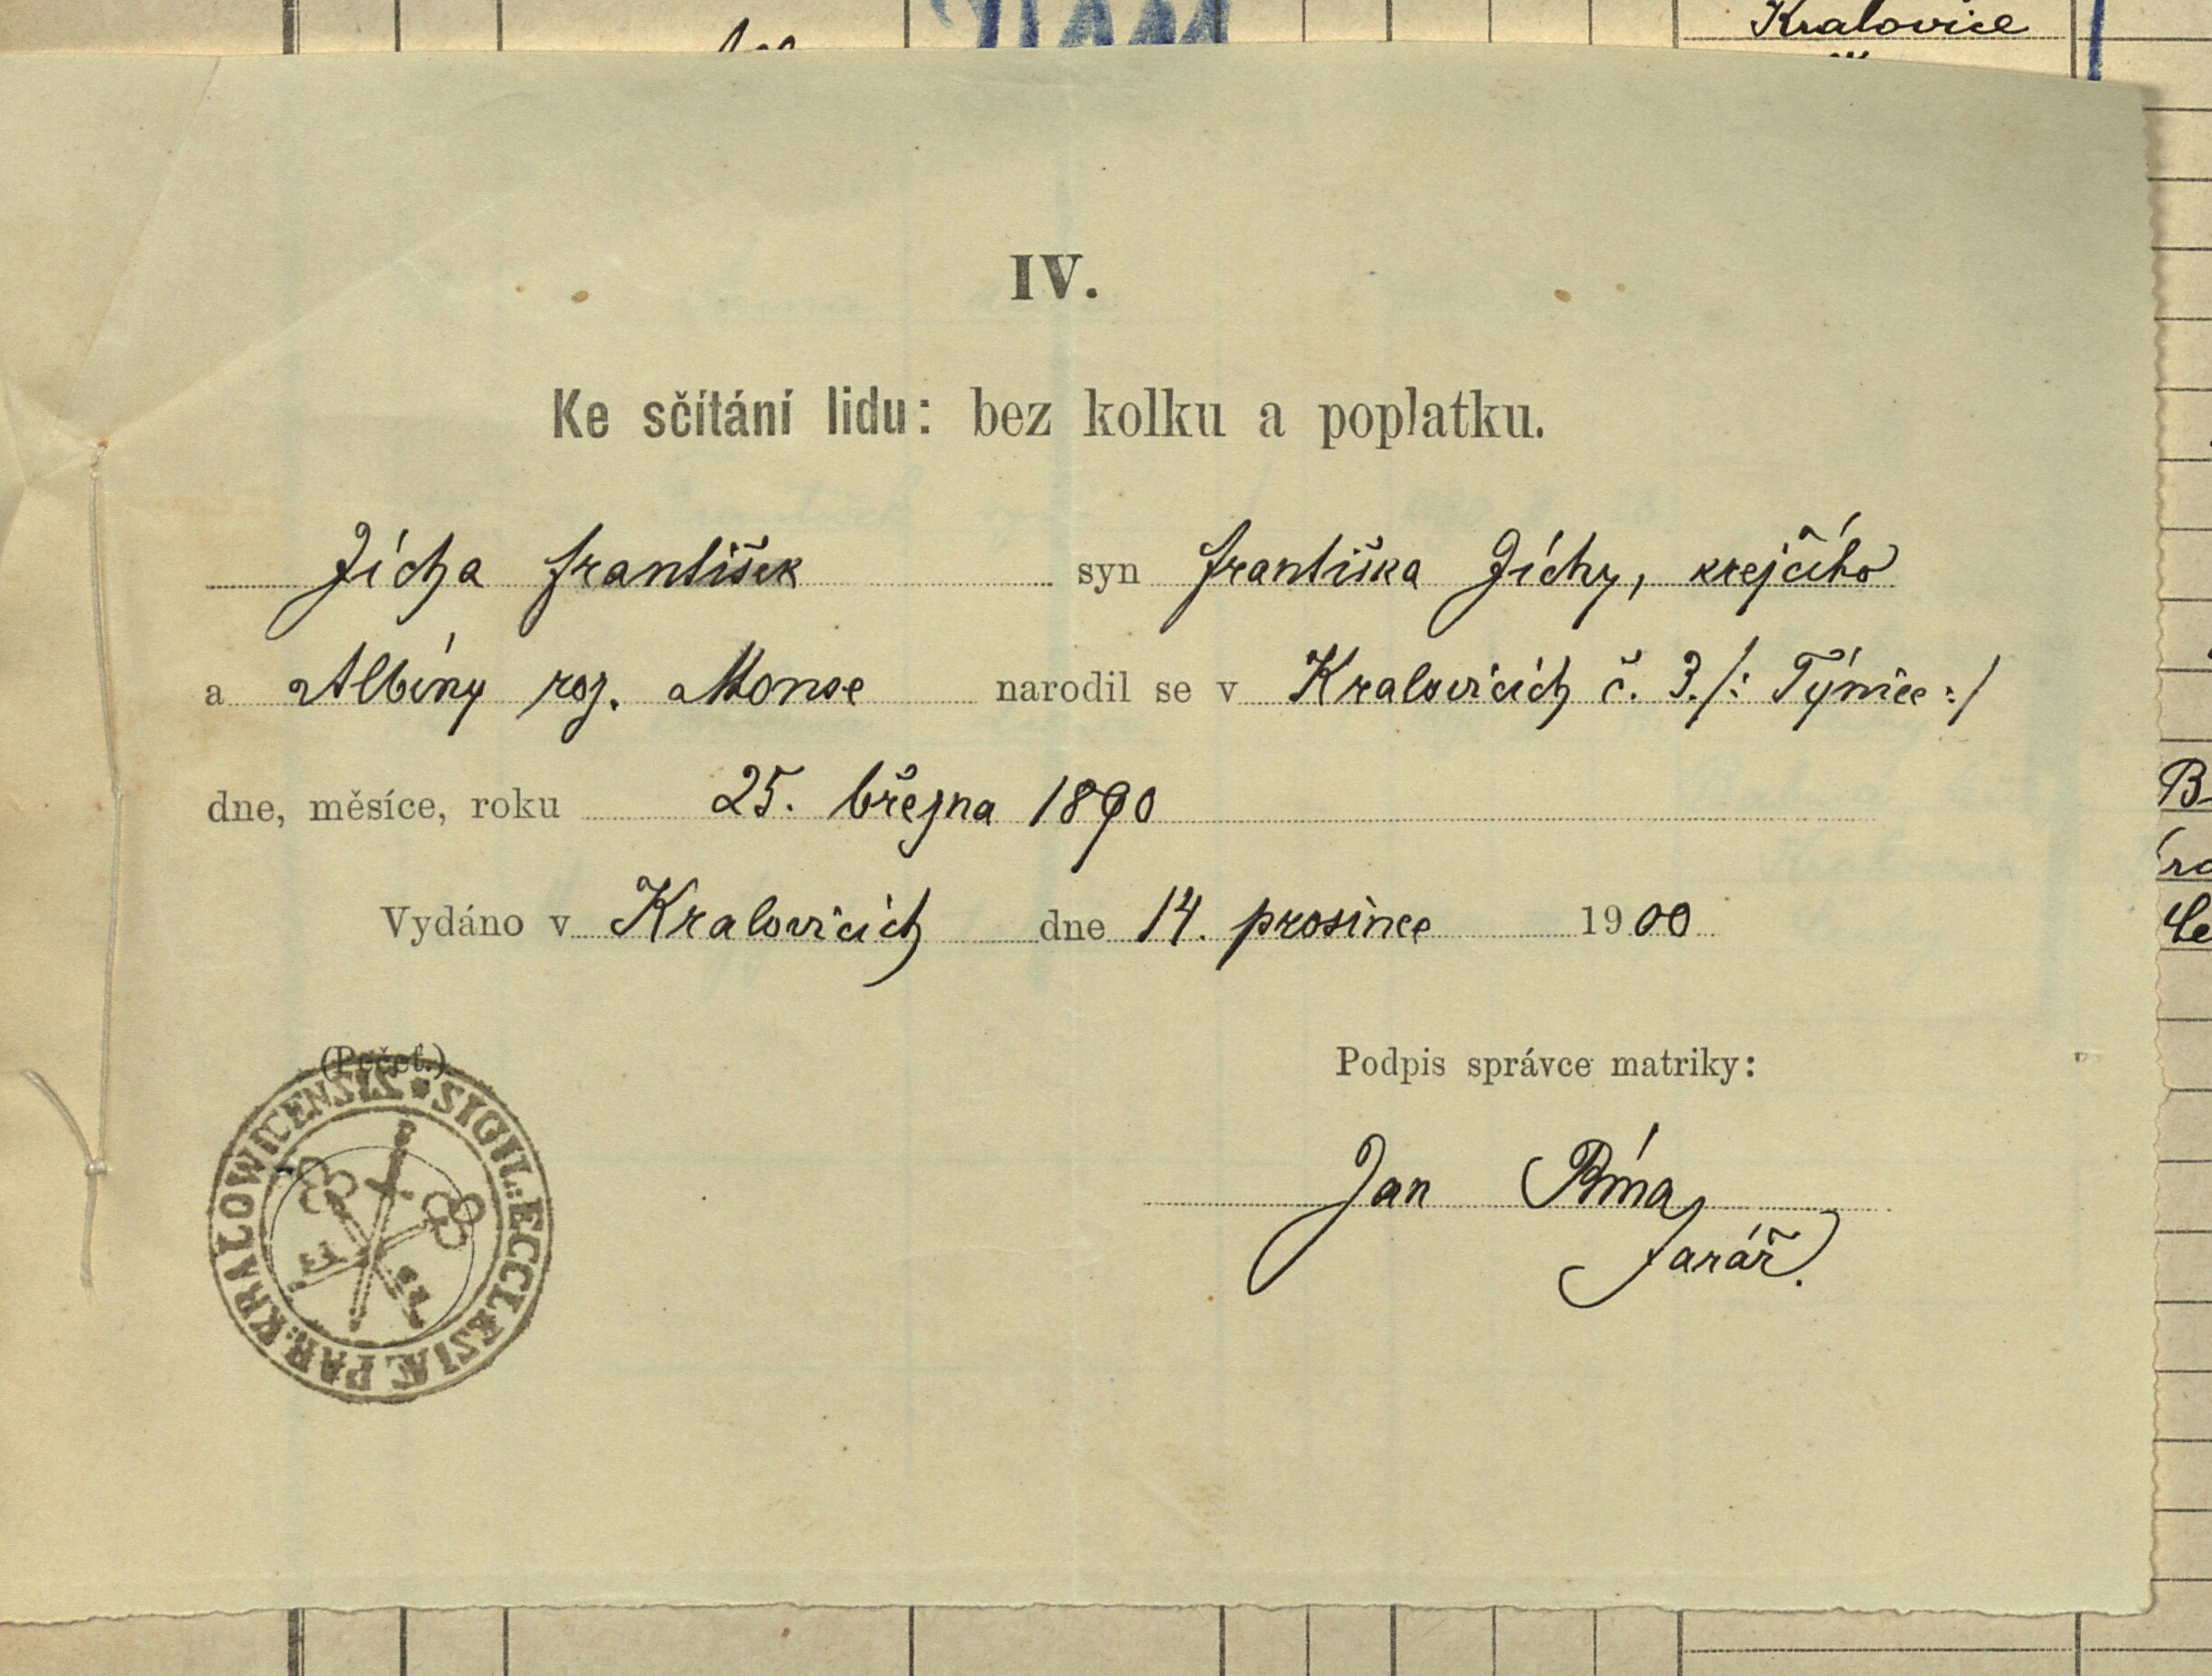 Kralovice
IV.
Ke sčítání lidu: bez kolku a poplatku.
Jícha František syn Františka Jíchy, krejčího
a Albíny roz. Monse narodil se v Kralovicích č. 3./: Týnice :/
dne, měsíce, roku 25. března 1890
Vydáno v Kralovicích dne 14. prosince 1900
(Pečeť.)
SIGIL: ECCLESIÆ PAR: KRALOWICENSIS
Podpis správce matriky:
Jan
farář.